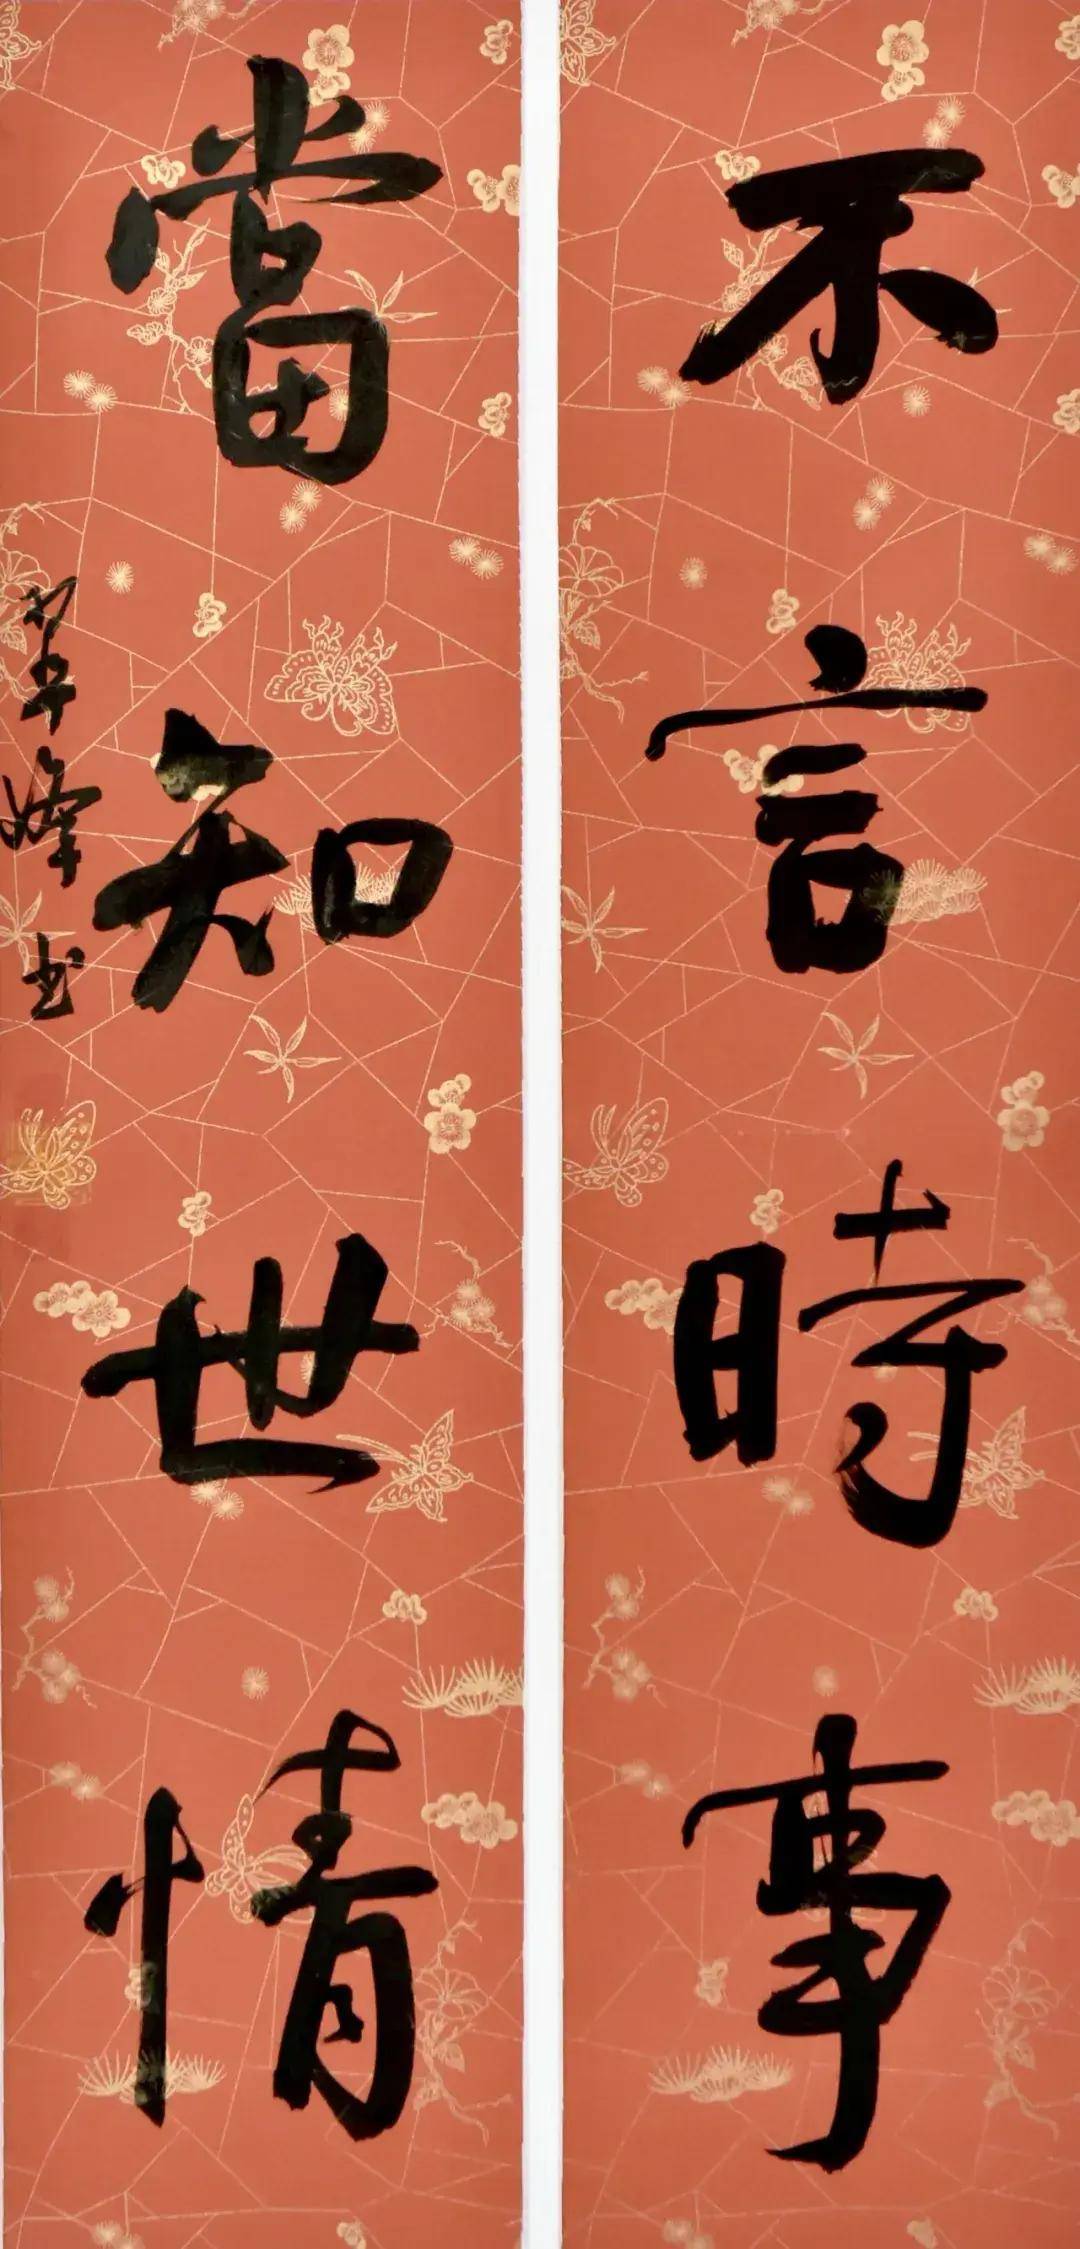 不言時事
當知世情
軍峰书